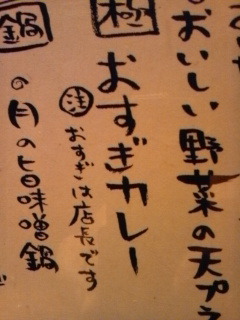 おいしい野菜の天プラ
極 おすぎカレー
注 おすぎは店長です
鍋 の月の旨味噌鍋